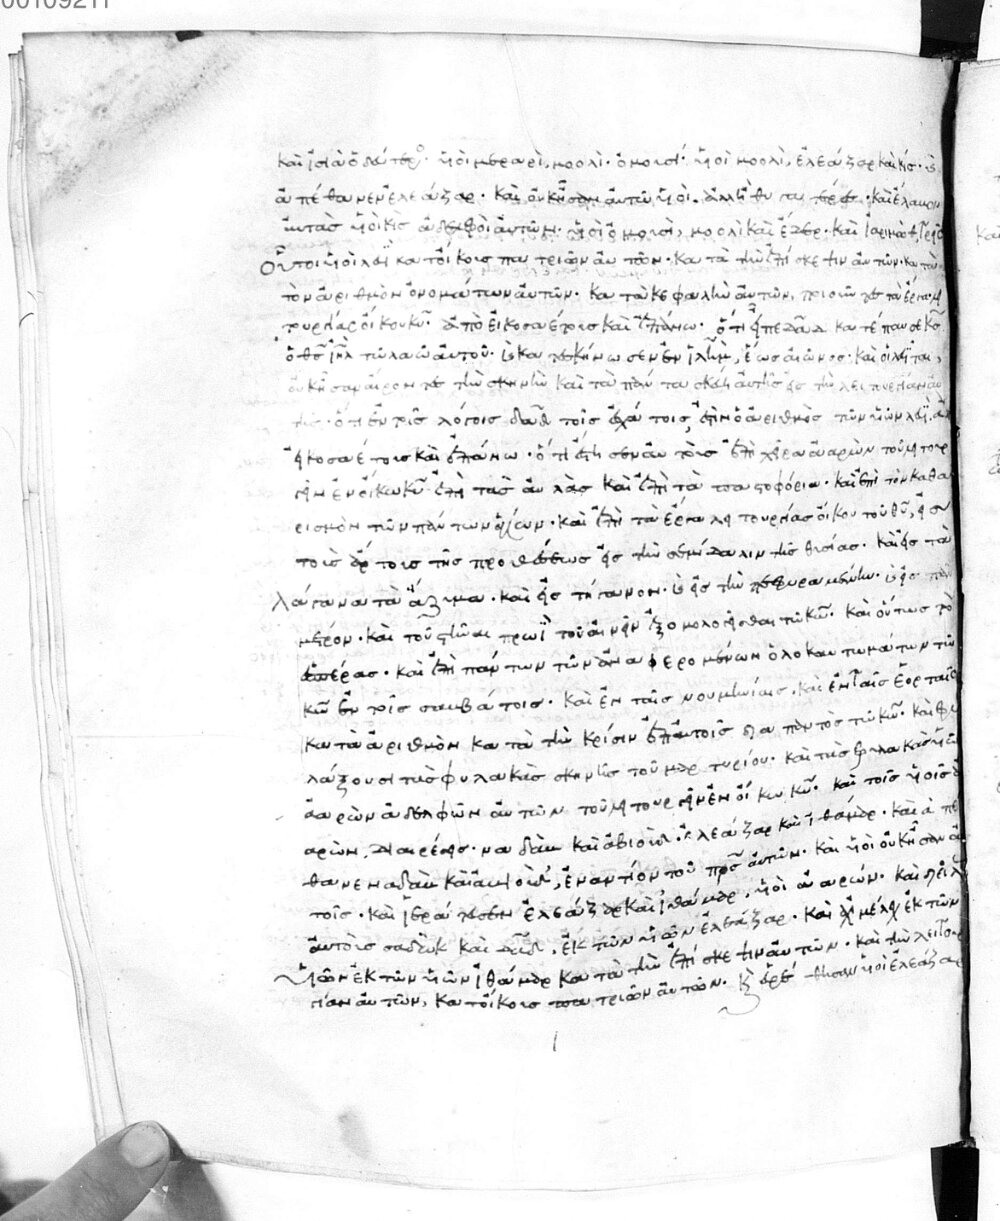 00109211
καὶ ἰσιὰ ὁ δεύτερος. υἱοὶ μεραρὶ, μοολὶ. ὁμουσί. υἱοὶ μοολὶ, ἐλεάζαρ καὶ κίς. καὶ
ἀπέθανεν ἐλεάζαρ. καὶ οὐκ ἦσαν αὐτῶ υἱοὶ. ἀλλ' ἢ θυγατέρες. καὶ ἔλαβον
αὐτὰς υἱοὶ κὶς ἀδελφοὶ αὐτῶν. υἱοὶ ὁμουσὶ, μοολὶ καὶ ἔδερ. καὶ ἰαριμώθ, τρεῖς
οὗτοι υἱοὶ λευὶ κατ' οἴκους πατριῶν αὐτῶν. κατὰ τὴν ἐπίσκεψιν αὐτῶν. κατὰ
τὸν ἀριθμὸν ὀνομάτων αὐτῶν. κατὰ κεφαλὴν αὐτῶν, ποιοῦντες τὰ ἔργα λει
τουργίας οἴκου κυ. ἀπὸ εἴκοσα ἔτους καὶ ἐπάνω. ὅτι εἶπε δαδ κατέπαυσε κς
ὁ θς ιηλ τῶ λαῶ αὐτοῦ. καὶ κατεσκήνωσεν ἐν ιλημ, ἕως αἰῶνος. καὶ οἱ λευῖται,
οὐκ ἦσαν αἴροντες τὴν σκηνὴν καὶ τὰ πάντα σκεύη αὐτῆς εἰς τὴν λειτουργίαν αὐ
τῆς. ὅτι ἐν τοῖς λόγοις δαδ τοῖς ἐσχάτοις, ἐστὶν ὁ ἀριθμὸς τῶν υἱῶν λευὶ. ἀπὸ
εἴκοσα ἔτους καὶ ἐπάνω. ὅτι ἔστησεν αὐτοὺς ἐπὶ χεῖρα ἀαρὼν τοῦ λειτουρ
γεῖν ἐν οἴκω κυ ἐπὶ τὰς αὐλὰς καὶ ἐπὶ τὰ παστοφόρια. καὶ ἐπὶ τὸν καθα
ρισμὸν τῶν πάντων ἁγίων. καὶ ἐπὶ τὰ ἔργα λειτουργίας οἴκου τοῦ θυ, εἰς
τοὺς ἄρτους τῆς προθέσεως εἰς τὴν σεμίδαλιν τῆς θυσίας. καὶ εἰς τὰ
λάγανα τὰ ἄζυμα. καὶ εἰς τήγανον. καὶ εἰς τὴν πεφυραμένην. καὶ εἰς πᾶν
μέτρον. καὶ τοῦ στῆναι πρωῒ τοῦ αἰνεῖν ἐξομολογεῖσθαι τῶ κω. καὶ οὕτως τὸ
ἑσπέρας. καὶ ἐπὶ πάντων τῶν ἀναφερομένων ὁλοκαυτωμάτων τῶ
κω ἐν τοῖς σαββάτοις. καὶ ἐν ταῖς νουμηνίαις. καὶ ἐν ταῖς ἑορταῖς
κατὰ ἀριθμὸν κατὰ τὴν κρίσιν ἐπ' αὐτοῖς διαπαντὸς τῶ κω. καὶ φυ
λάξουσι τὰς φυλακὰς σκηνῆς τοῦ μαρτυρίου. καὶ τὰς φυλακὰς υἱῶν
ἀαρὼν ἀδελφῶν αὐτῶν τοῦ λειτουργεῖν ἐν οἴκω κυ. καὶ τοῖς υἱοῖς ἀ
αρὼν. διαιρέσεις. ναδὰβ καὶ ἀβιοὺδ. ἐλεάζαρ καὶ ἰθάμαρ. καὶ ἀπέ
θανε ναδὰβ καὶ ἀβιοὺδ, ἐναντίον τοῦ πρς αὐτῶν. καὶ υἱοὶ οὐκ ἦσαν αὐ
τοῖς. καὶ ἱεράτευσεν ἐλεάζαρ καὶ ἰθάμαρ, υἱοὶ ἀαρών. καὶ διεῖλεν
αὐτοὺς σαδοὺκ καὶ δαδ, ἐκ τῶν υἱῶν ἐλεάζαρ. καὶ ἀχιμέλεχ ἐκ τῶν
υἱῶν ἐκ τῶν υἱῶν ἰθάμαρ κατὰ τὴν ἐπίσκεψιν αὐτῶν. κατὰ τὴν λειτουρ
γίαν αὐτῶν, κατ' οἴκους πατριῶν αὐτῶν. καὶ εὑρέθησαν υἱοὶ ἐλεάζαρ